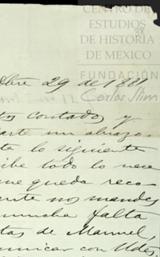 CENTRO DE
ESTUDIOS
DE HISTORIA
DE MÉXICO
FUNDACIÓN
Carlos Slim
bre 29 de 188
contados, y
arte un abrazo
te lo siguiente
ibe todo lo nece
me queda reco
ente nos mandes
mucha falta
tas de Manuel
unicar con Udes